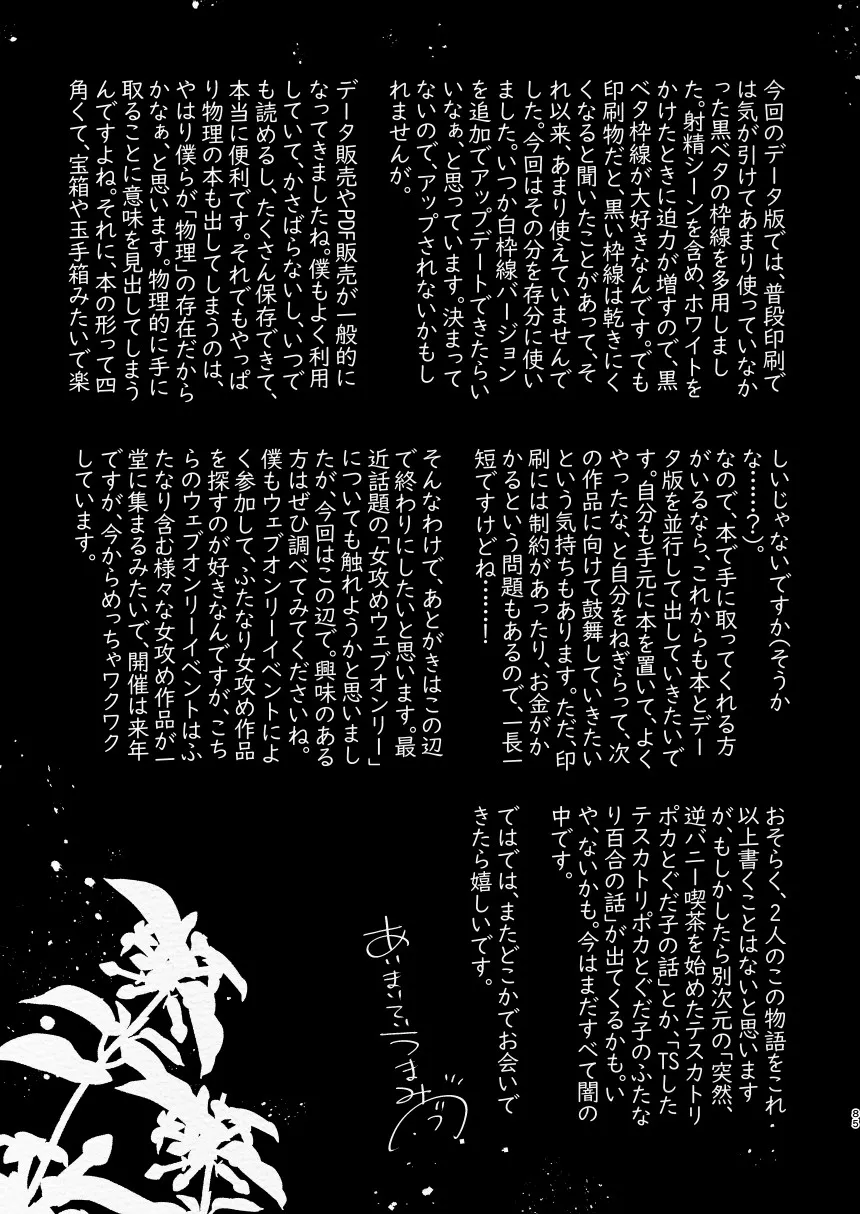 今回のデータ版では、普段印刷で
は気が引けてあまり使っていなか
った黒ベタの枠線を多用しまし
た。射精シーンを含め、ホワイトを
かけたときに迫力が増すので、黒
ベタ枠線が大好きなんです。でも
印刷物だと、黒い枠線は乾きにく
くなると聞いたことがあって、そ
れ以来、あまり使えていませんで
した。今回はその分を存分に使い
ました。いつか白枠線バージョン
を追加でアップデートできたらい
いなぁ、と思っています。決まって
ないので、アップされないかもし
れませんが。
データ販売やPDF販売が一般的に
なってきましたね。僕もよく利用
していて、かさばらないし、いつで
も読めるし、たくさん保存できて、
本当に便利です。それでもやっぱ
り物理の本も出してしまうのは、
やはり僕らが「物理」の存在だから
かなぁ、と思います。物理的に手に
取ることに意味を見出してしまう
んですよね。それに、本の形って四
角くて、宝箱や玉手箱みたいで楽
しいじゃないですか(そうか
な……?)。
なので、本で手に取ってくれる方
がいるなら、これからも本とデー
タ版を並行して出していきたいで
す。自分も手元に本を置いて、よく
やったな、と自分をねぎらって、次
の作品に向けて鼓舞していきたい
という気持ちもあります。ただ、印
刷には制約があったり、お金がか
かるという問題もあるので、一長一
短ですけどね……!
そんなわけで、あとがきはこの辺
で終わりにしたいと思います。最
近話題の「女攻めウェブオンリー」
についても触れようかと思いまし
たが、今回はこの辺で。興味のある
方はぜひ調べてみてくださいね。
僕もウェブオンリーイベントによ
く参加して、ふたなり女攻め作品
を探すのが好きなんですが、こち
らのウェブオンリーイベントはふ
たなり含む様々な女攻め作品が一
堂に集まるみたいで、開催は来年
ですが、今からめっちゃワクワク
しています。
おそらく、2人のこの物語をこれ
以上書くことはないと思います
が、もしかしたら別次元の「突然、
逆バニー喫茶を始めたテスカトリ
ポカとぐだ子の話」とか、「TSした
テスカトリポカとぐだ子のふたな
り百合の話」が出てくるかも。い
や、ないかも。今はまだすべて闇の
中です。
ではでは、またどこかでお会いで
きたら嬉しいです。
あいまいていうまみ
85